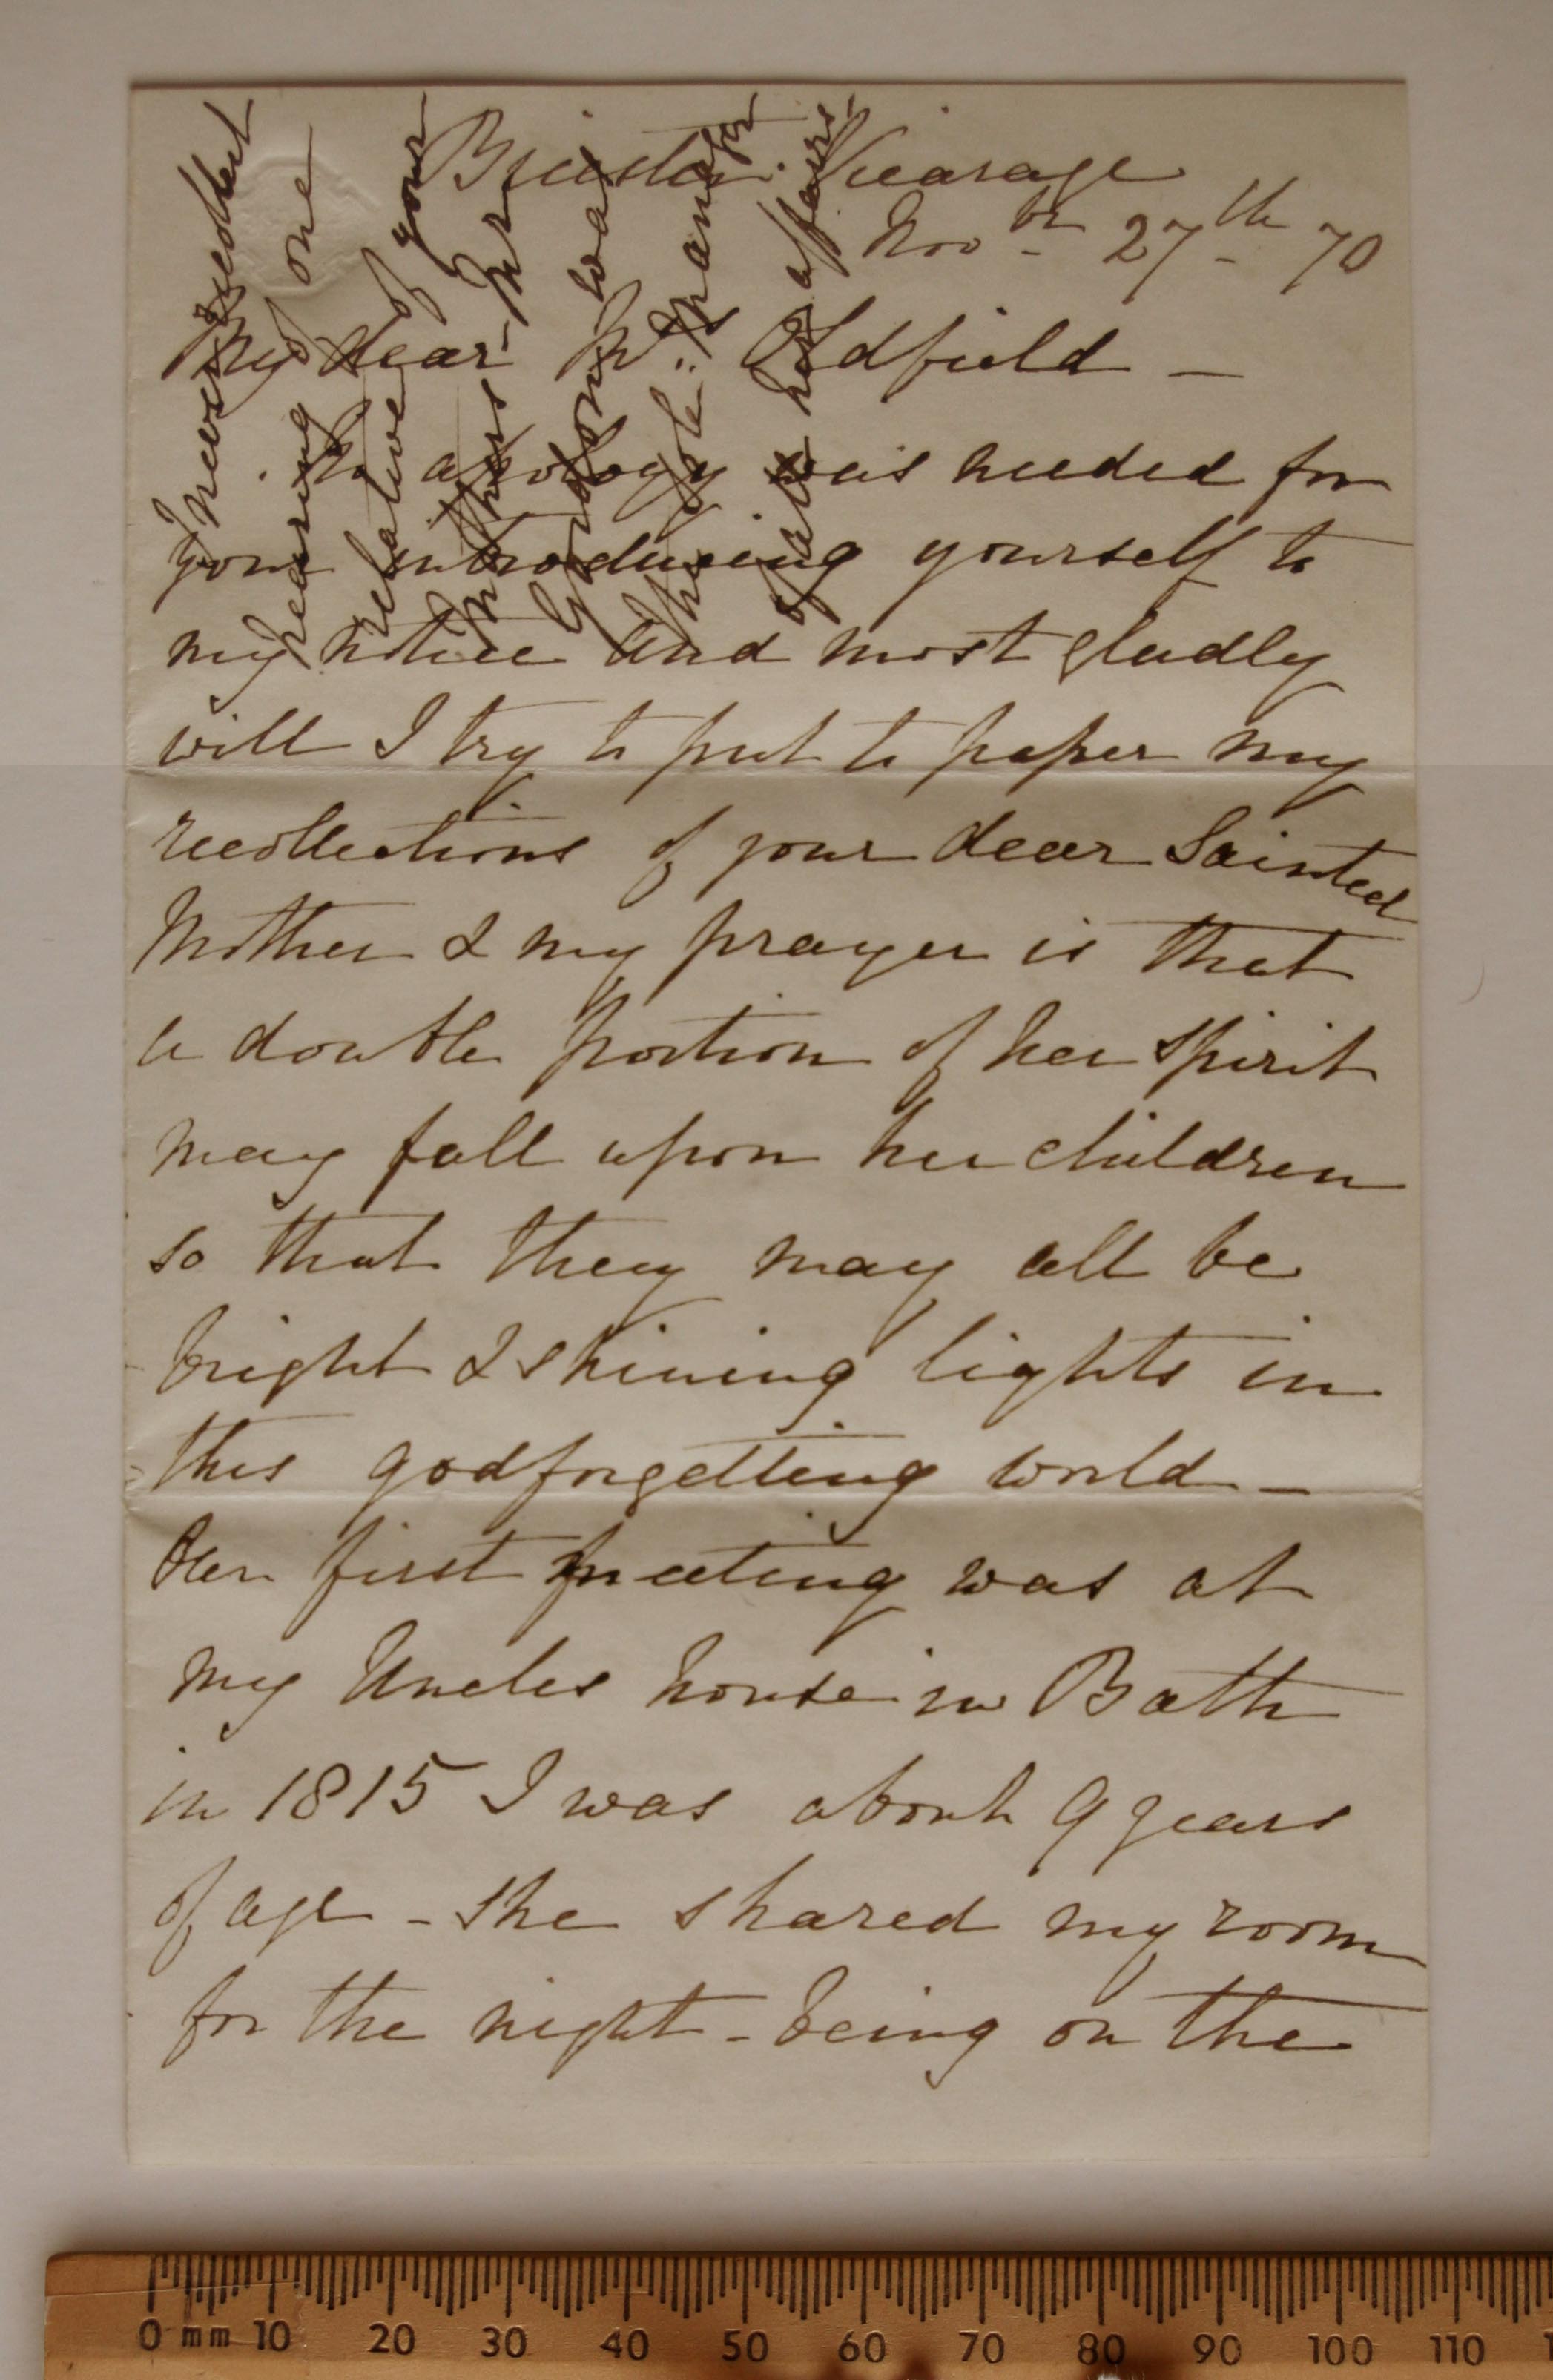 Vicarage
Novbr 27th 70
My dear Mrs Oldfield –
No apology was needed for
your introducing yourself to
my notice and most gladly
will I try to put to paper my
recollections of your dear Sainted
Mother & my prayer is that
a double portion of her spirit
may fall upon her children
so that they may all be
bright & shining lights in
this godforgetting world –
Our first meeting was at
my Uncles house in Bath
in 1815 I was about 9 years
of age – She shared my room
for the night – being on the
I never recollect
hearing of one
relative of your
Mothers – Mr
Gordon was
I hope
of all her affairs –
0 mm 10 20 30 40 50 60 70 80 90 100 110